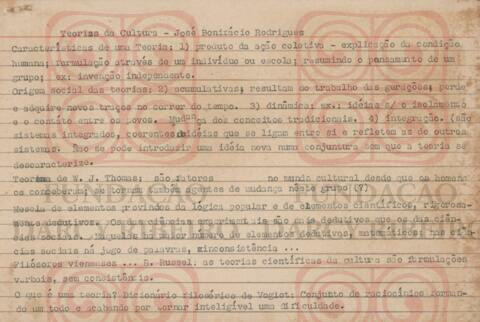 Teorias da Cultura - José Bonifácio Rodrigues
Características de uma Teoria: 1) produto da ação coletiva - explicação da condição
humana; formulação através de um indivíduo ou escola; resumindo o pensamento de um
grupo; ex: invenção independente.
Origem social das teorias: 2) acumulativas; resultam do trabalho das gerações; perde
e adquire novos traços no correr do tempo. 3) dinâmica; ex. idéias s/ o isolamento
e o contáto entre os povos. Mudança dos conceitos tradicionais. 4) integração. (são
sistemas integrados, coerentes de idéias que se ligam entre si e refletem as de outros
sistemas. Não se pode introduzir uma idéia nova numa conjuntura sem que a teoria se
descaracterize.
Teorema de W. J. Thomas: são fatores no mundo cultural desde que os homens
os conceberam; se tornam ambos agentes de mudança neste grupo (?)
Mescla de elementos provindos da lógica popular e de elementos científicos, rigorosa-
mente dedutivos. As ciências experimentais são mais dedutivas que os das ciên-
cias sociais. Naquelas há maior número de elementos dedutivos, matemáticos; nas ciên-
cias sociais há jogo de palavras, inconsistência ...
Filósofos vienenses ... B. Russel: as teorias científicas da cultura são formulações
verbais, sem consistência.
O que é uma teoria? Dicionário filosófico de : Conjunto de raciocínios forman-
do um todo e acabando por tornar inteligível uma dificuldade.